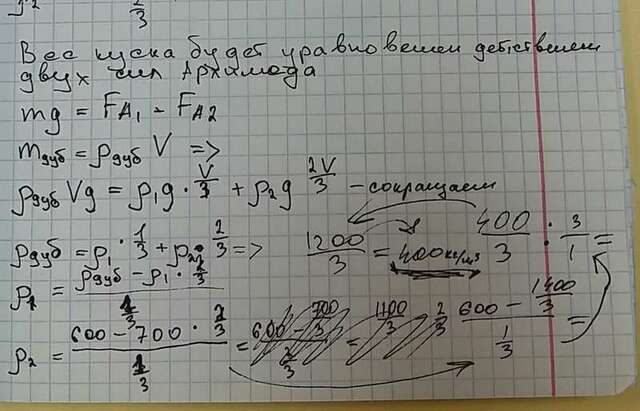 2
3
Вес куска будет уравновешен действием
двух сил Архимеда
mg = FA1 - FA2
mдуб = ρдуб V =>
ρдуб Vg = ρ1g · V/3 + ρ2g 2V/3 - сокращаем
ρдуб = ρ1 · 1/3 + ρ2 · 2/3 => 1200/3 = 400кг/м3 400/3 · 3/1 =
= ρдуб - ρ1 · 2/3 / 1/3
ρ2 = 600 - 700 · 2/3 / 1/3 = 600 - 700/3 / 2/3 = 1100/3 2/3 600 - 1400/3 / 1/3 =